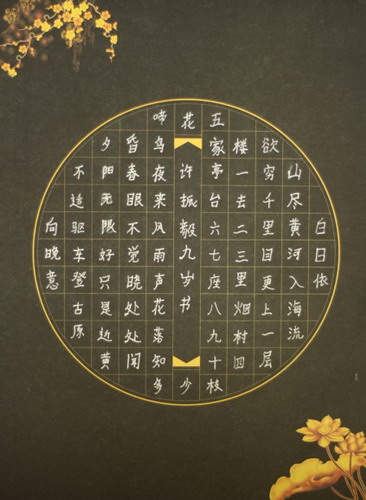 白日依
山尽黄河入海流
欲穷千里目更上一层
楼一去二三里烟村四
五家亭台六七座八九十枝
花
许振毅九岁书
少
啼鸟夜来风雨声花落知多
昏春眠不觉晓处处闻
夕阳无限好只是近黄
不适驱车登古原
向晚意